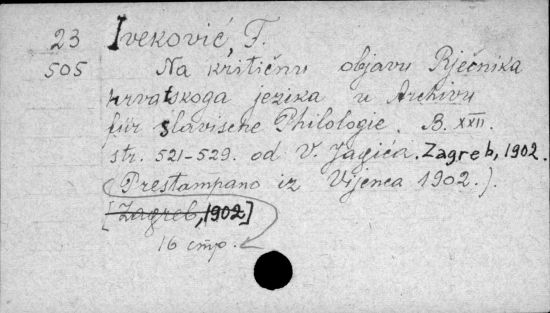 23 Iveković, F.
505 Na kritičnu objavu Rječnika
hrvatskoga jezika u Archivu
für slavische Philologie. B. XXII.
str. 521-529. od V. Jagića. Zagreb, 1902.
(Preštampano iz Vijenca 1902.).
[Zagreb, 1902]
16 стр.